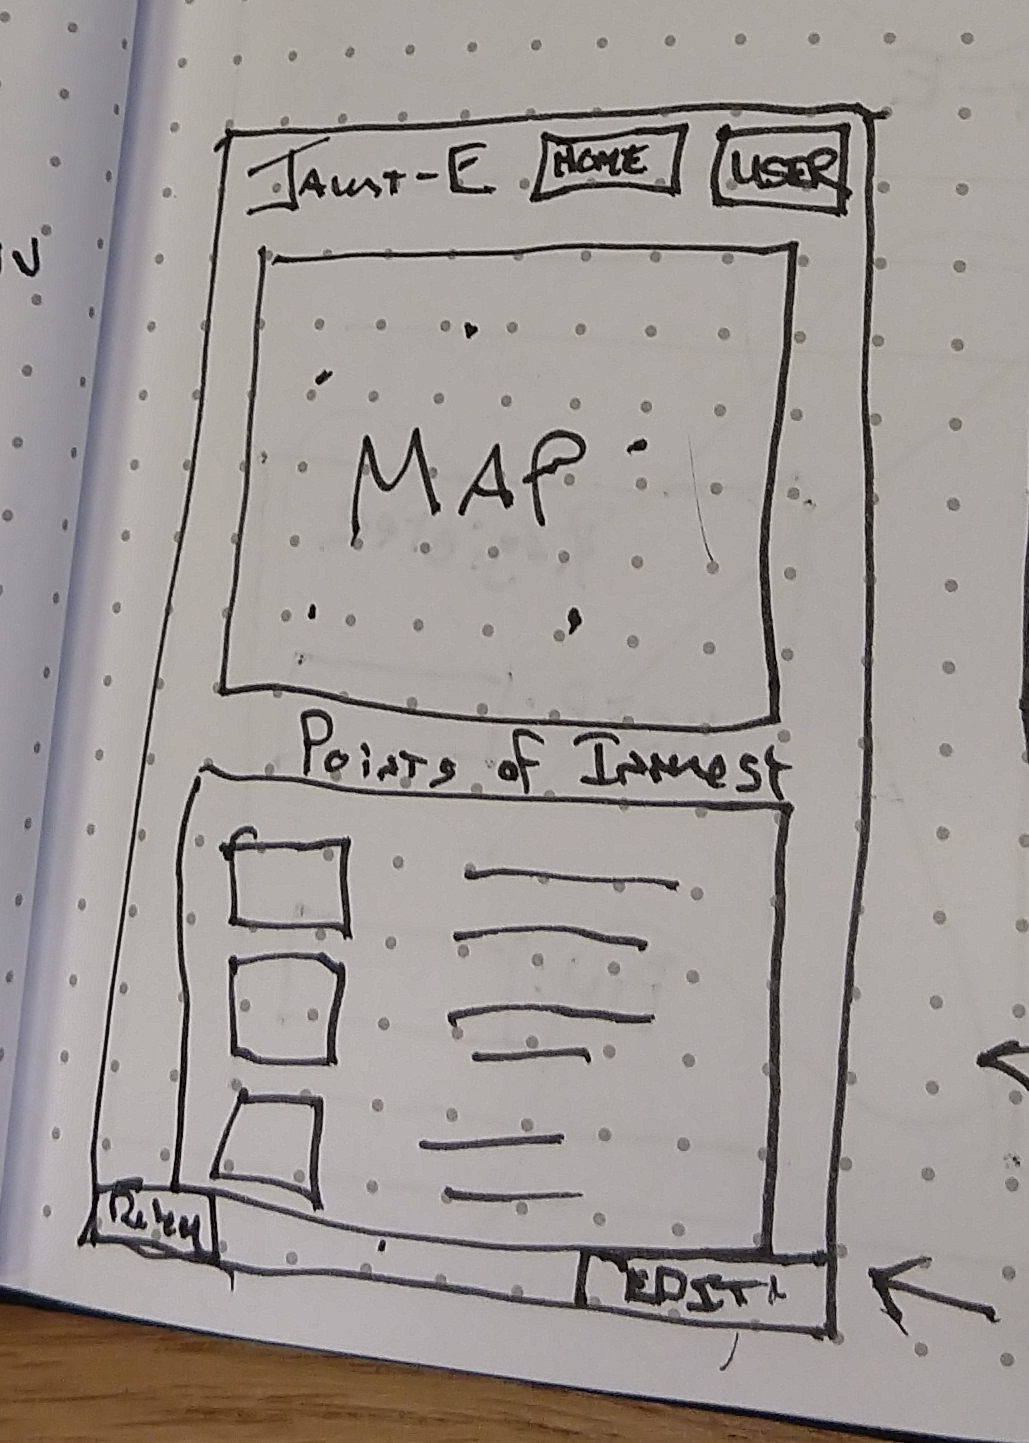 Jaunt-E HOME USER
MAP
Points of Interest
EDIT